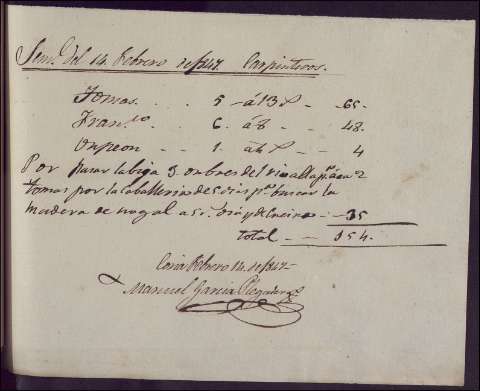 Sem.ª del 14 Febrero de 1847. Carpinteros.
Tomas. . . 5 - á 13 - 65.
Fran.co . . 6. á 8 - 48.
Un peon . . 1. á 4 - 4
Por pasar la biga 3 onbres del rio alla
tomas por la Caballeria de 5 dias buscar la
madera de nogal a 5 r.
35
total - - 154.
Coria Febrero 14 de 1847
Manuel Garcia